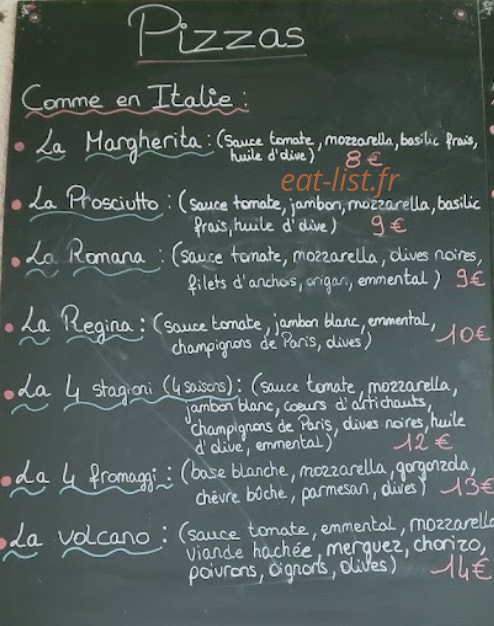 Pizzas
Comme en Italie :
La Margherita : (sauce tomate, mozzarella, basilic frais,
huile d'olive) 8€
eat-list.fr
La Prosciutto : (sauce tomate, jambon, mozzarella, basilic
frais, huile d'olive) 9€
La Romana : (sauce tomate, mozzarella, olives noires,
filets d'anchois, origan, emmental) 9€
La Regina : (sauce tomate, jambon blanc, emmental,
champignons de Paris, olives) 10€
La 4 stagioni (4 saisons) : (sauce tomate, mozzarella,
jambon blanc, coeurs d'artichauts,
champignons de Paris, olives noires, huile
d'olive, emmental) 12€
La 4 fromaggi : (base blanche, mozzarella, gorgonzola,
chèvre bûche, parmesan, olives) 13€
La volcano : (sauce tomate, emmental, mozzarella
viande hachée, merguez, chorizo,
poivrons, oignons, olives) 14€